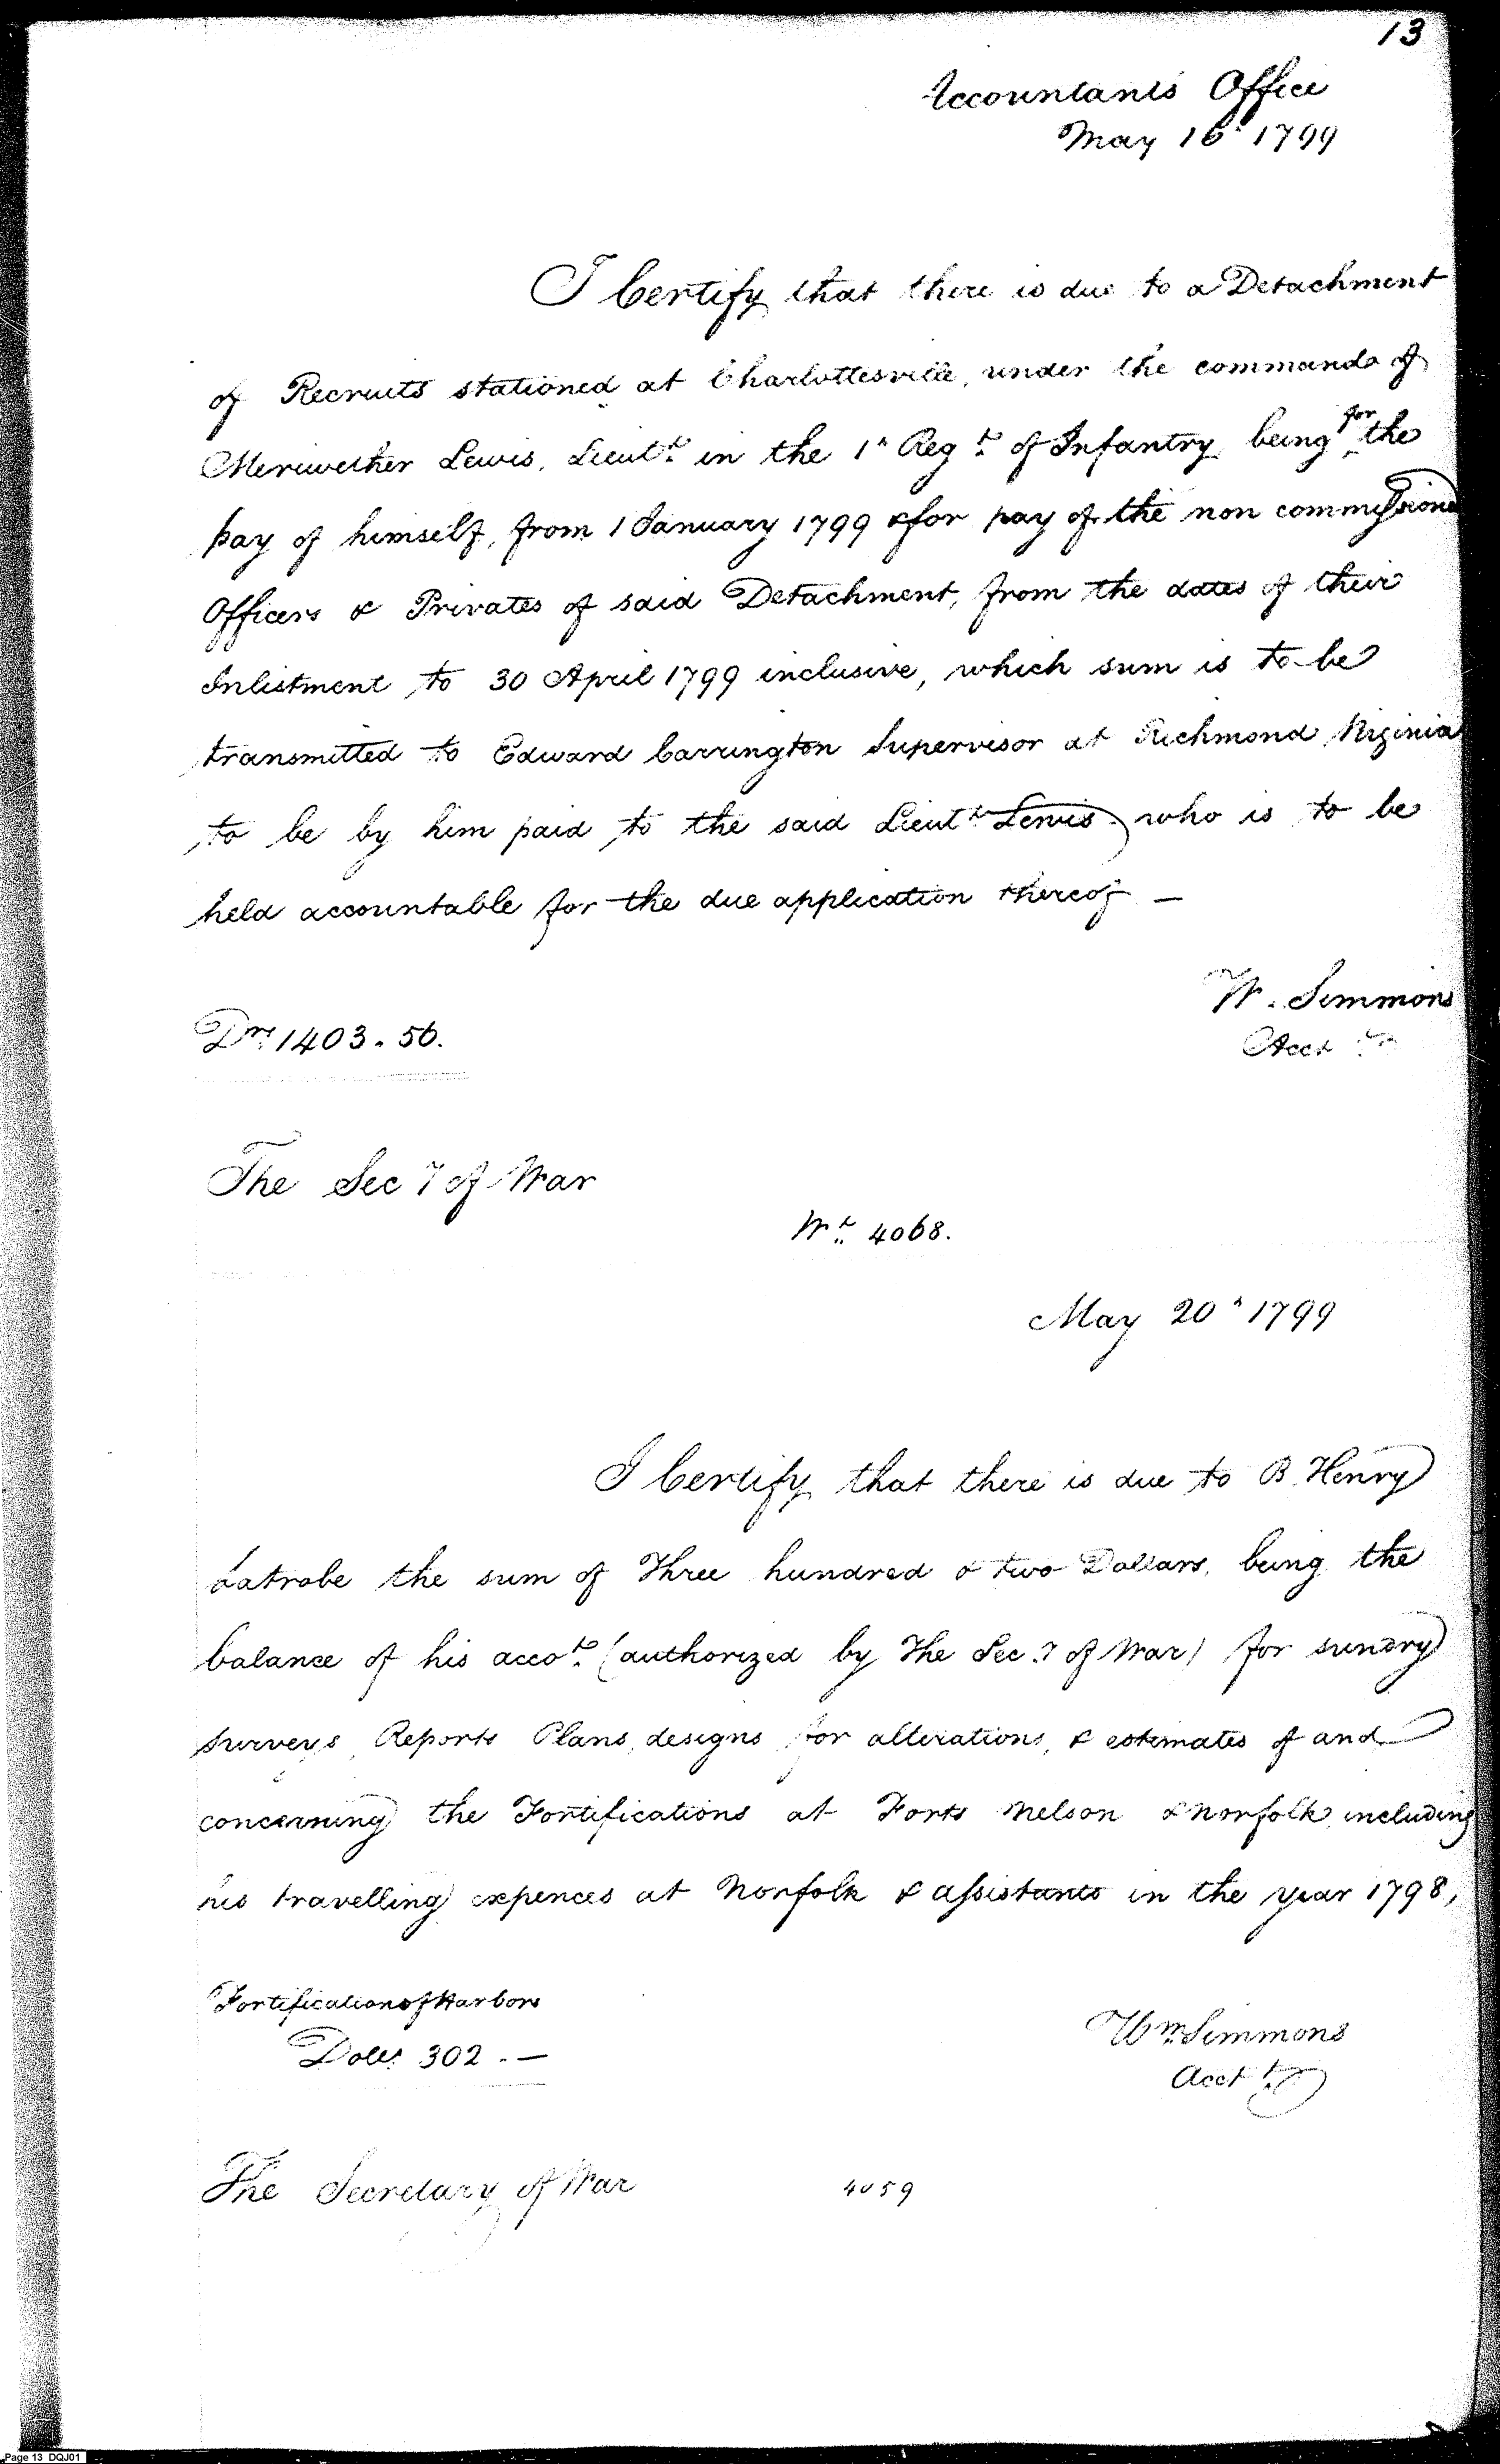 13
Accountants Office
May 16th 1799
I Certify that there is due to a Detachment
of Recruits stationed at Charlottesville, under the command of
Meriwether Lewis, Lieutt. in the 1st Regt. of Infantry, being for the
pay of himself, from 1 January 1799 & for pay of the non commissioned
Officers & Privates of said Detachment, from the dates of their
Inlistment to 30 April 1799 inclusive, which sum is to be
transmitted to Edward Carrington Supervisor at Richmond Virginia
to be by him paid to the said Lieutt. Lewis who is to be
held accountable for the due application thereof —
W. Simmons
Acct
Drs. 1403.56.
The Secy of War
Wt. 4068.
May 20th 1799
I Certify that there is due to B. Henry
Latrobe the sum of Three hundred & two Dollars, being the
balance of his accot. (authorized by The Secy of War) for sundry
surveys, Reports Plans, designs for alterations, & estimates of and
concerning the Fortifications at Forts Nelson & Norfolk, including
his travelling expences at Norfolk & assistants in the year 1798,
Fortifications of Harbors
Dolls. 302.—
Wm. Simmons
Acctt.
The Secretary of War
4059
Page 13 DQJ01